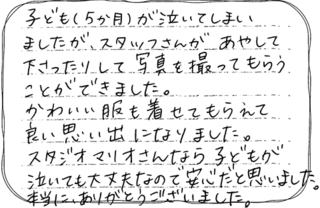 子ども(5か月)が泣いてしまい
ましたが、スタッフさんが あやして
下さったりして写真を撮ってもらう
ことができました。
かわいい服も着せてもらえて
良い思い出になりました。
スタジオマリオさんなら子どもが
泣いても大丈夫なので安心だと思いました。
本当に、ありがとうございました。